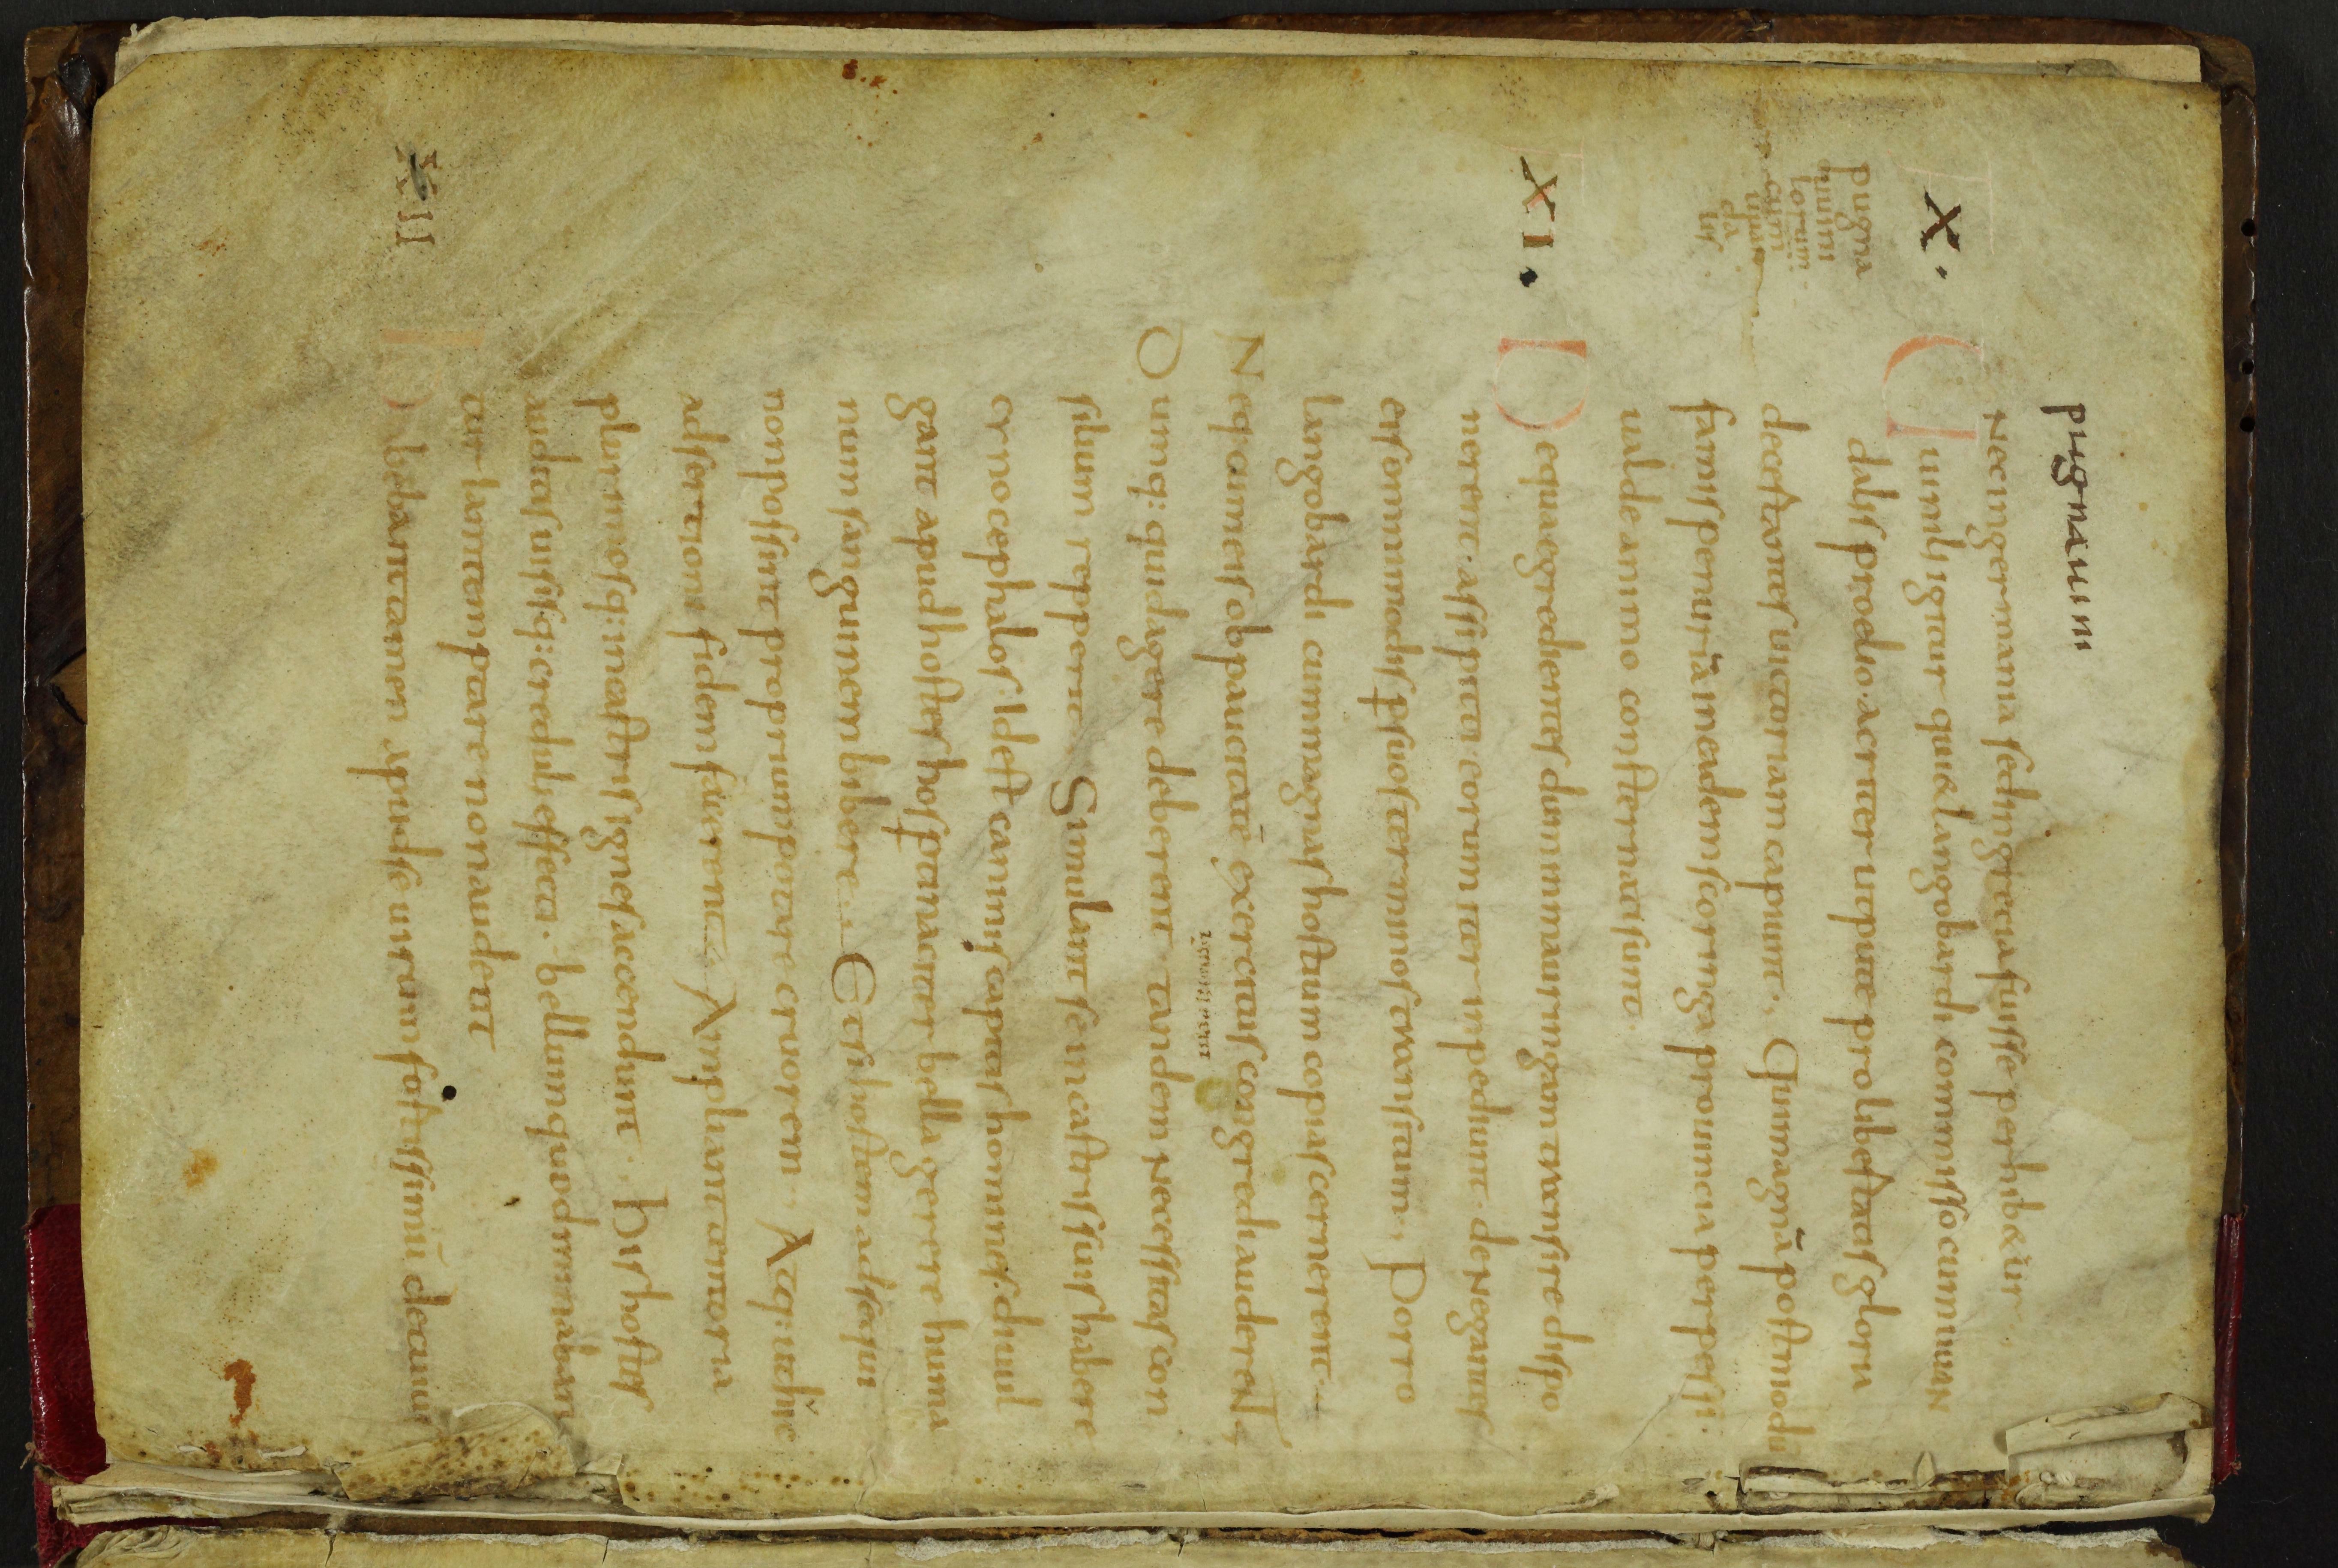 pugnauim
Necingermania sedingrecia fuisse perhib&ur.
X.
Uuinili igitur qui& langobardi commissocumwan
dalis proelio. acriter utpute pro libertatis gloria
decertantes uictoriam capiunt., Qui magnā postmodū
famis penuriā ineadem scoringa prouincia perpessi.
ualde animo consternati sunt.
pugna
uuini
lorum.
cum
uuan
da
lis.
XI.
De qua egredientes dum inmauringam transire dispo
nerent. assipitti eorum iter inpediunt. deNegantes
eis omnimodis p suos terminos transitum., Porro
langobardi cum magnas hostium copias cernerent
Neq; cum eis ob paucitatē exercitus congredi auderent,
Dumq; quid agere deberent tandem Necessitas con
silium repperit. Simulant se in castris suis habere
cynocephalos. Idest canini capitis homines. diuul
gant apud hostes hos ptinaciter bella gerere huma
num sanguinem bibere. Et si hostem adsequi
non possint proprium potare cruorem. Atq; ut huic
adsertioni fidem facerent. Ampliant tentoria
plurimosq; incastris ignes accendunt. His hostes
auditis uisisq; creduli effecti. bellum quod minaban
tur iam temptare non audent
XII
Habebant tamen apud se uirum fortissimū decuius